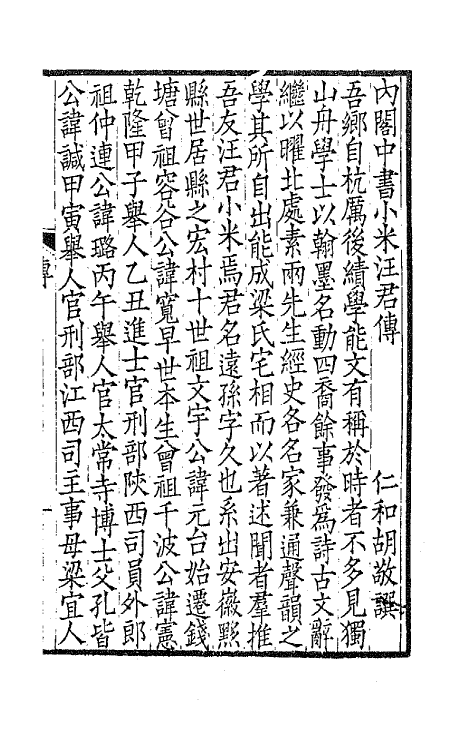 內閣中書小米汪君傳 仁和胡敬譔
吾鄉自杭厲後績學能文有稱於時者不多見獨
山舟學士以翰墨名動四裔餘事發爲詩古文辭
繼以曜北處素兩先生經史各名家兼通聲韻之
學其所自出能成梁氏宅相而以著述聞者羣推
吾友汪君小米焉君名遠孫字久也系出安徽黟
縣世居縣之宏村十世祖文宇公諱元台始遷錢
塘曾祖容谷公諱寬早世本生曾祖千波公諱憲
乾隆甲子舉人乙丑進士官刑部陝西司員外郎
祖仲連公諱璐丙午舉人官太常寺博士父孔皆
公諱諴甲寅舉人官刑部江西司主事母梁宜人
傳
一